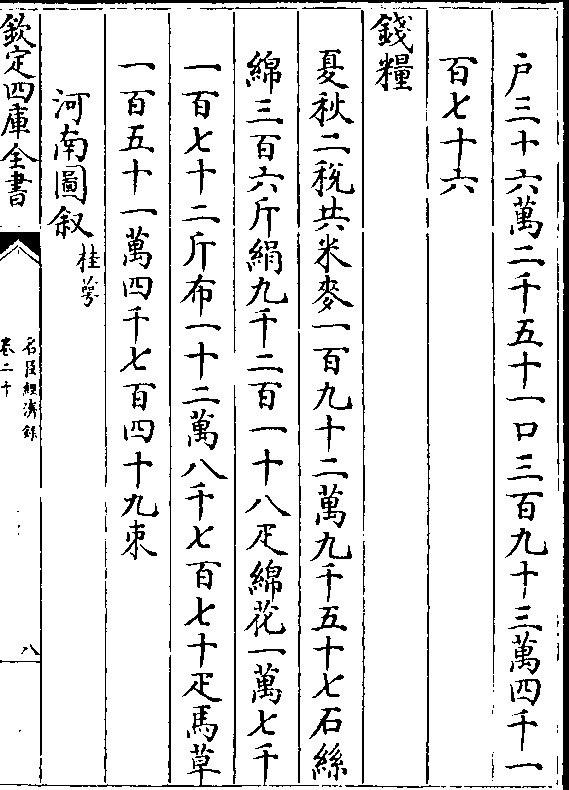 户三十六萬二千五十一口三百九十三萬四千一
百七十六
錢糧
夏秋二稅共米麥一百九十二萬九千五十七石絲
綿三百六斤絹九千二百一十八疋綿花一萬七千
一百七十二斤布一十二萬八千七百七十疋馬草
一百五十一萬四千七百四十九束
河南圖叙 桂萼
欽定四庫全書
名臣經濟錄
卷二十
八